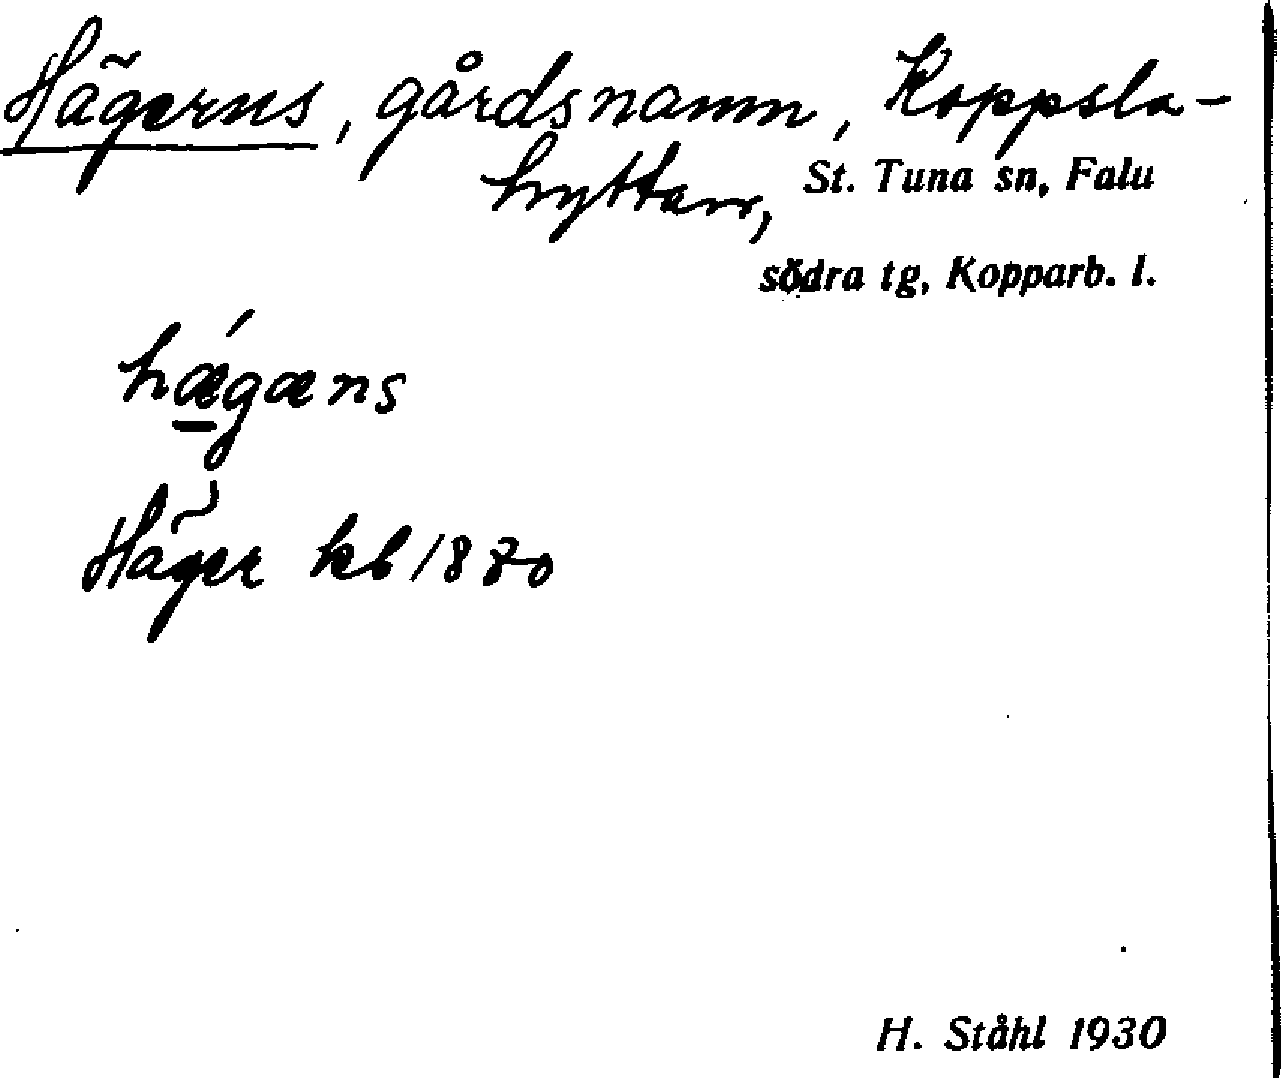 Hägerns, gårdsnamn, Koppsla-
hyttan,
St. Tuna sn, Falu
södra tg, Kopparb. l.
hǽgæns
Häger kb 1880
H. Ståhl 1930